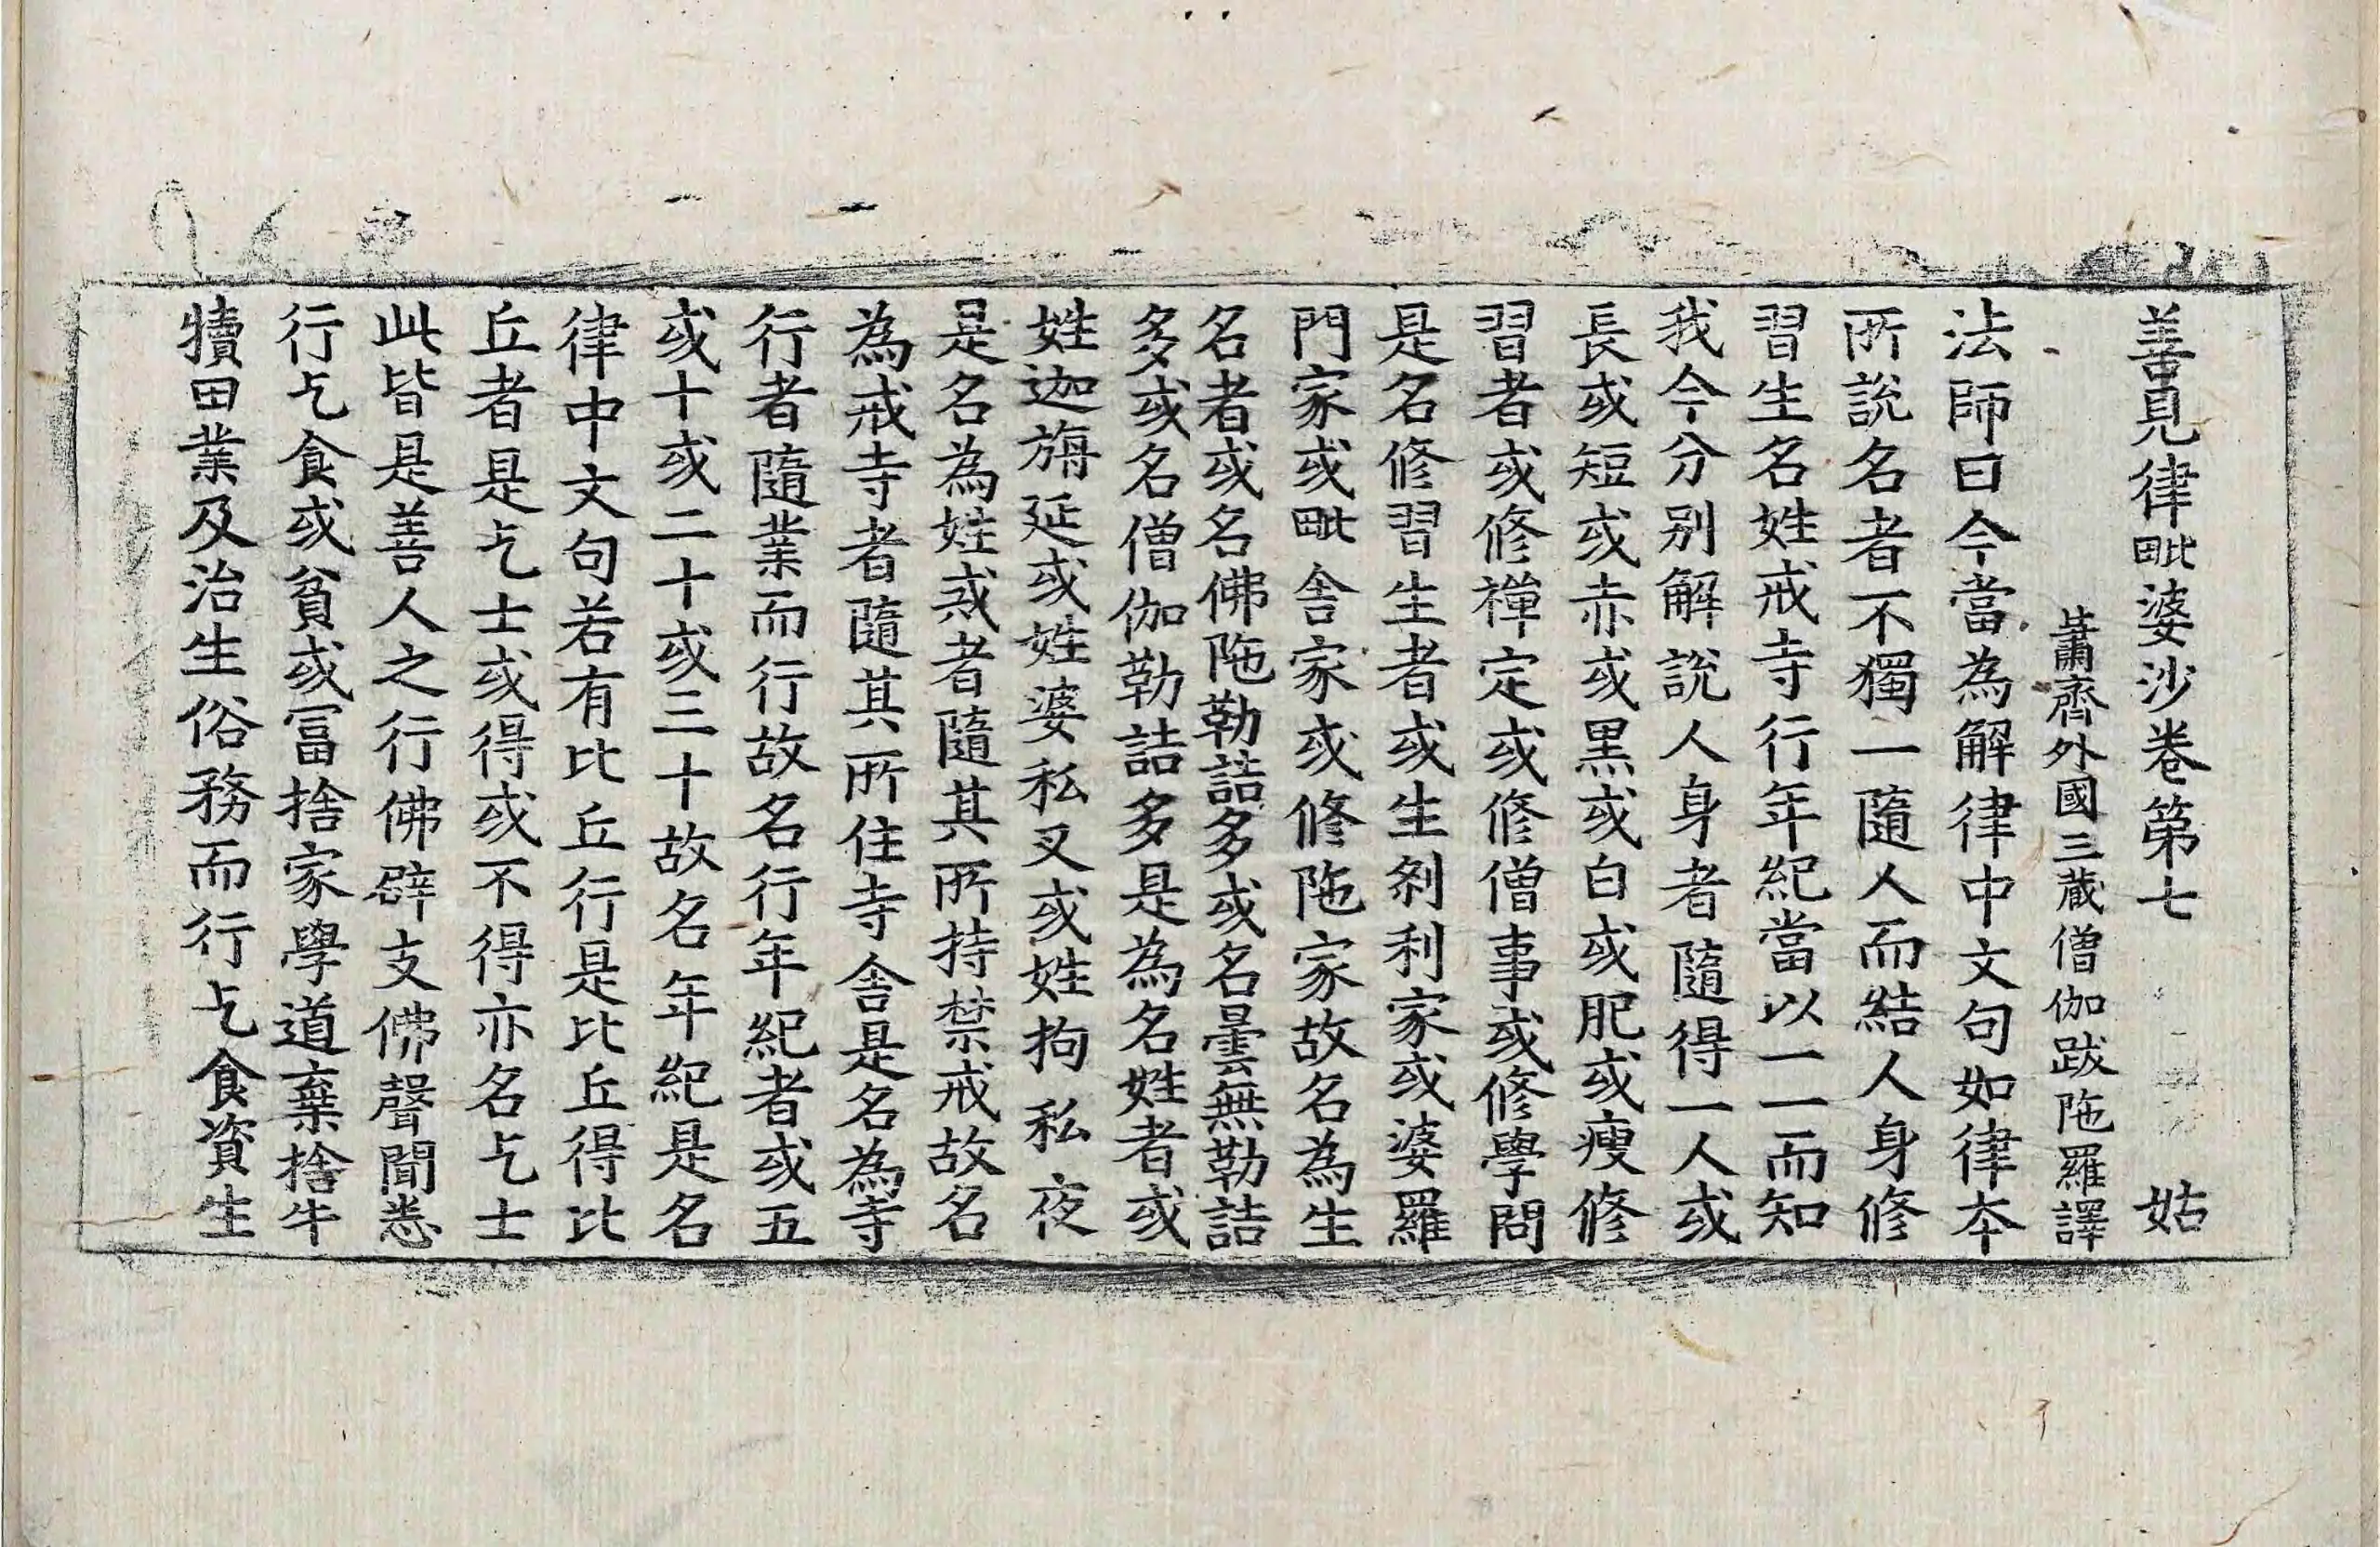 善見律毗婆沙卷第七 姑
蕭齊外國三藏僧伽跋陁羅譯
法師曰今當為解律中文句如律本
所說名者不獨一隨人而結人身修
習生名姓戒寺行年紀當以一一而知
我今分別解說人身者隨得一人或
長或短或赤或黑或白或肥或瘦修
習者或修禪定或修僧事或修學問
是名修習生者或生剎利家或婆羅
門家或毗舍家或修陁家故名為生
名者或名佛陁勒詰多或名曇無勒詰
多或名僧伽勒詰多是為名姓者或
姓迦旃延或姓婆私叉或姓拘私夜
是名為姓戒者隨其所持禁戒故名
為戒寺者隨其所住寺舍是名為寺
行者隨業而行故名行年紀者或五
或十或二十或三十故名年紀是名
律中文句若有比丘行是比丘得比
丘者是乞士或得或不得亦名乞士
此皆是善人之行佛辟支佛聲聞悉
行乞食或貧或富捨家學道棄捨牛
犢田業及治生俗務而行乞食資生